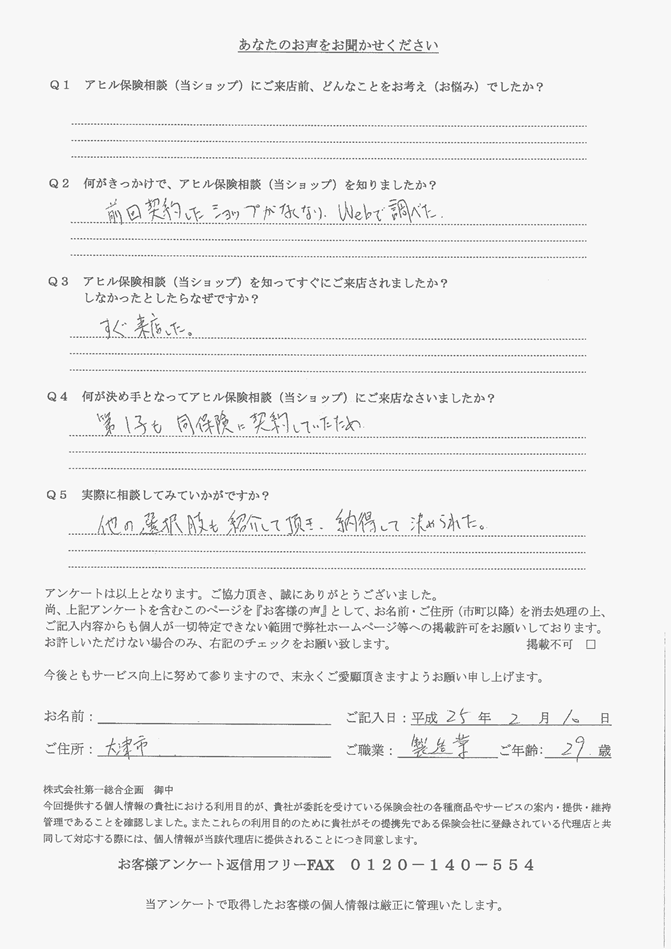 あなたのお声をお聞かせください
Q1 アヒル保険相談（当ショップ）にご来店前、どんなことをお考え（お悩み）でしたか？
Q2 何がきっかけで、アヒル保険相談（当ショップ）を知りましたか？
前回契約したショップがなくなり、Webで調べた。
Q3 アヒル保険相談（当ショップ）を知ってすぐにご来店されましたか？
しなかったとしたらなぜですか？
すぐ来店した。
Q4 何が決め手となってアヒル保険相談（当ショップ）にご来店なさいましたか？
第1子も同保険に契約していたため
Q5 実際に相談してみていかがですか？
他の選択肢も紹介して頂き、納得して決められた。
アンケートは以上となります。ご協力頂き、誠にありがとうございました。
尚、上記アンケートを含むこのページを『お客様の声』として、お名前・ご住所（市町以降）を消去処理の上、
ご記入内容からも個人が一切特定できない範囲で弊社ホームページ等への掲載許可をお願いしております。
お許しいただけない場合のみ、右記のチェックをお願い致します。 掲載不可 □
今後ともサービス向上に努めて参りますので、末永くご愛顧頂きますようお願い申し上げます。
お名前： ご記入日：平成 25 年 2 月 10 日
ご住所： 大津市 ご職業： 製造業 ご年齢: 29 歳
株式会社第一総合企画 御中
今回提供する個人情報の貴社における利用目的が、貴社が委託を受けている保険会社の各種商品やサービスの案内・提供・維持
管理であることを確認しました。またこれらの利用目的のために貴社がその提携先である保険会社に登録されている代理店と共
同して対応する際には、個人情報が当該代理店に提供されることにつき同意します。
お客様アンケート返信用フリーFAX 0120－140－554
当アンケートで取得したお客様の個人情報は厳正に管理いたします。